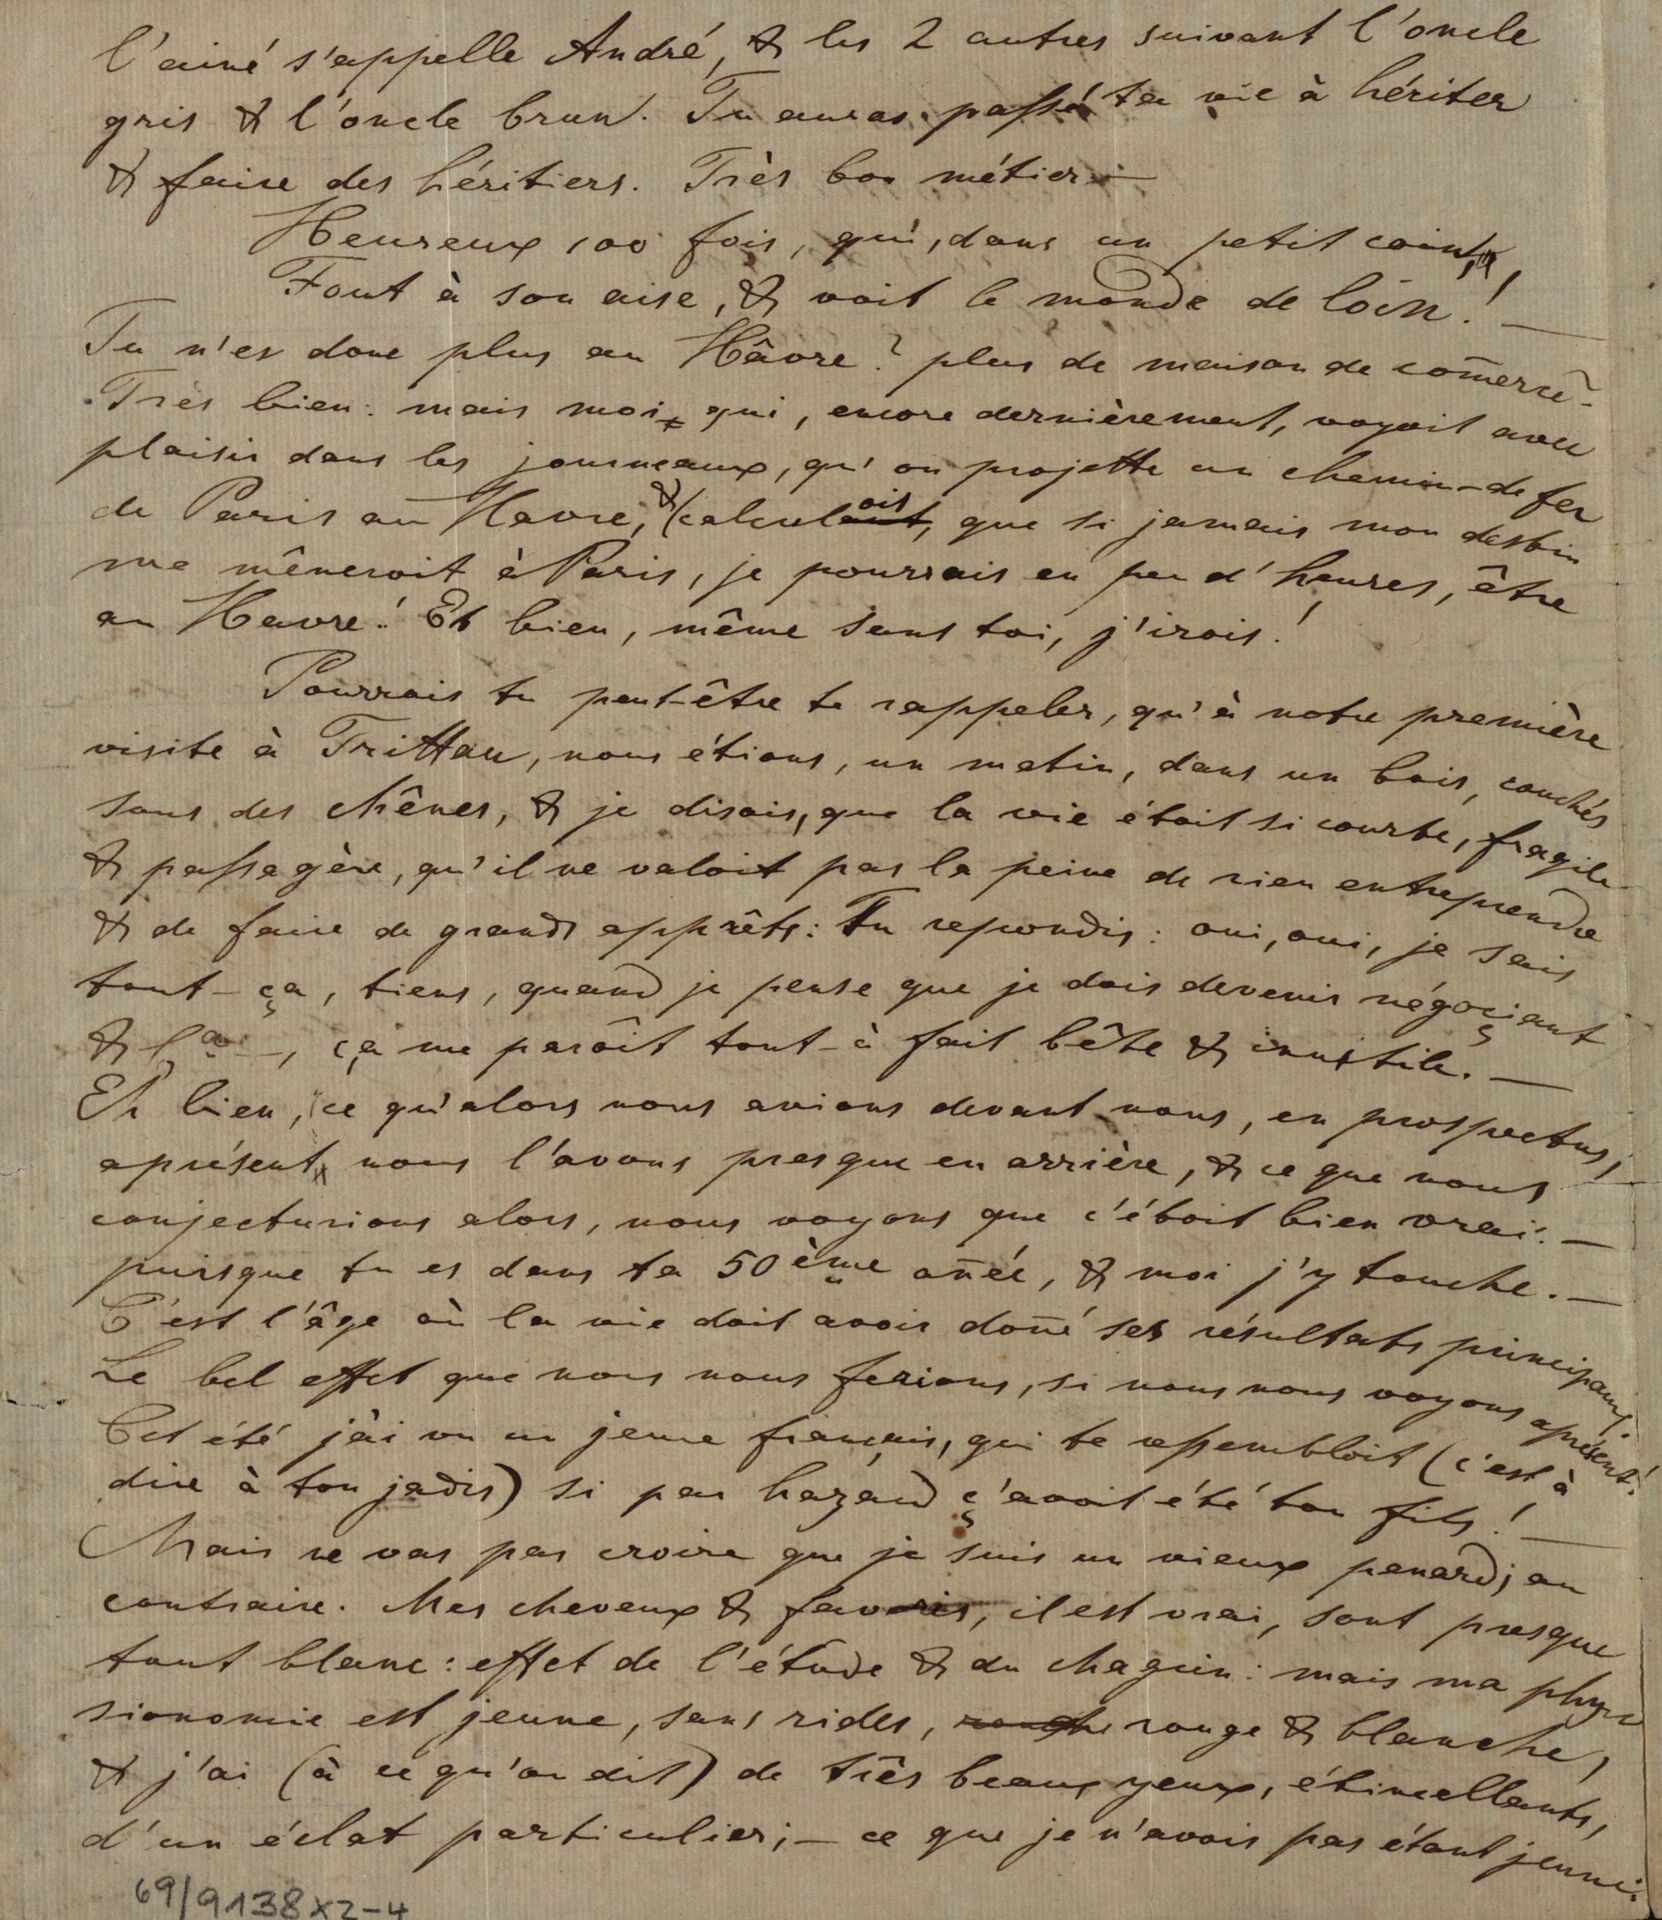 l'ainé s'appelle André, & les 2 autres suivant l'oncle
gris & l'oncle brun. Tu auras passé ta vie à hériter
& faire des héritiers. Très bon métier. —
Heureux 100 fois, qui, dans un petit coin,
Fout à son aise, & voit le monde de loin! —
Tu n'es donc plus au Hâvre? plus de maison de com̄erce.
Très bien: mais moi qui, encore dernièrement, voyoit avec
plaisir dans les journeaux, qu'on projette un chemin-de fer
de Paris au Havre, & calculois, que si jamais mon destin
me mêneroit à Paris, je pourrais en peu d'heures, être
au Havre! Et bien, même sans toi, j'irois!
Pourrais tu peut-être te rappeler, qu'à notre première
visite à Trittau, nous étions, un matin, dans un bois, couchés
sous des chênes, & je disois, que la vie étoit si courte, fragile
& passagère, qu'il ne valoit pas la peine de rien entreprendre
& de faire de grands apprêts: Tu repondis: oui, oui, je sais
tout-ça, tiens, quand je pense que je dois devenir négoçiant
&, ça me paroît tout-à fait bête & inutile. —
Eh bien, ce qu'alors nous avions devant nous, en prospectus,
aprésent nous l'avons presque en arrière, & ce que nous
conjecturions alors, nous voyons que c'étoit bien vrai. —
puisque tu es dans ta 50ème an̄ée, & moi j'y touche. —
C'est l'âge où la vie doit avoir don̄é ses résultats principaux.
Le bel effet que nous nous ferions, si nous nous voyons aprésent!
Cet été j'ai vu un jeune français, qui te ressembloit (c'est à
dire à ton jadis) si par hazard ç'avoit été ton fils! —
Mais ne vas pas croire que je suis un vieux penard; au
contraire. Mes cheveux & favoris, il est vrai, sont presque
tout blanc: effet de l'étude & du chagrin: mais ma phy
sionomie est jeune, sans rides, rouge & blanche,
& j'ai (à ce qu'on dit) de très beaux yeux, étincellants,
d'un éclat particulier; — ce que je n'avois pas étant jeune.
69/9138x2-4